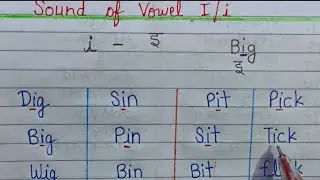 Sound of Vowel I/i
i - इ Big
इ
Dig Sin Pit Pick
Big Pin Sit Tick
Wig Bin Bit